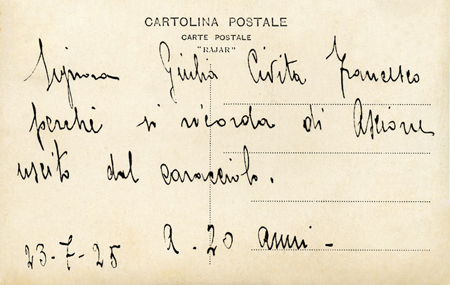 CARTOLINA POSTALE
CARTE POSTALE
"RAJAR"
Signora Giulia Civita Francesco
perché si ricorda di Ascione
uscito dal caracciolo.
A. 20 anni -
23-7-25